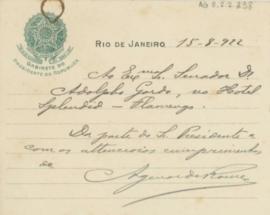 RIO DE JANEIRO, 15-8-922
GABINETE DO
PRESIDENTE DA REPUBLICA
Ao Exmo. Senador Dr.
Adolpho Gordo, no Hotel
Splendid - Flamengo.
Da parte do Sr. Presidente e
com os attenciosos cumprimentos
de
Agenor de Roure